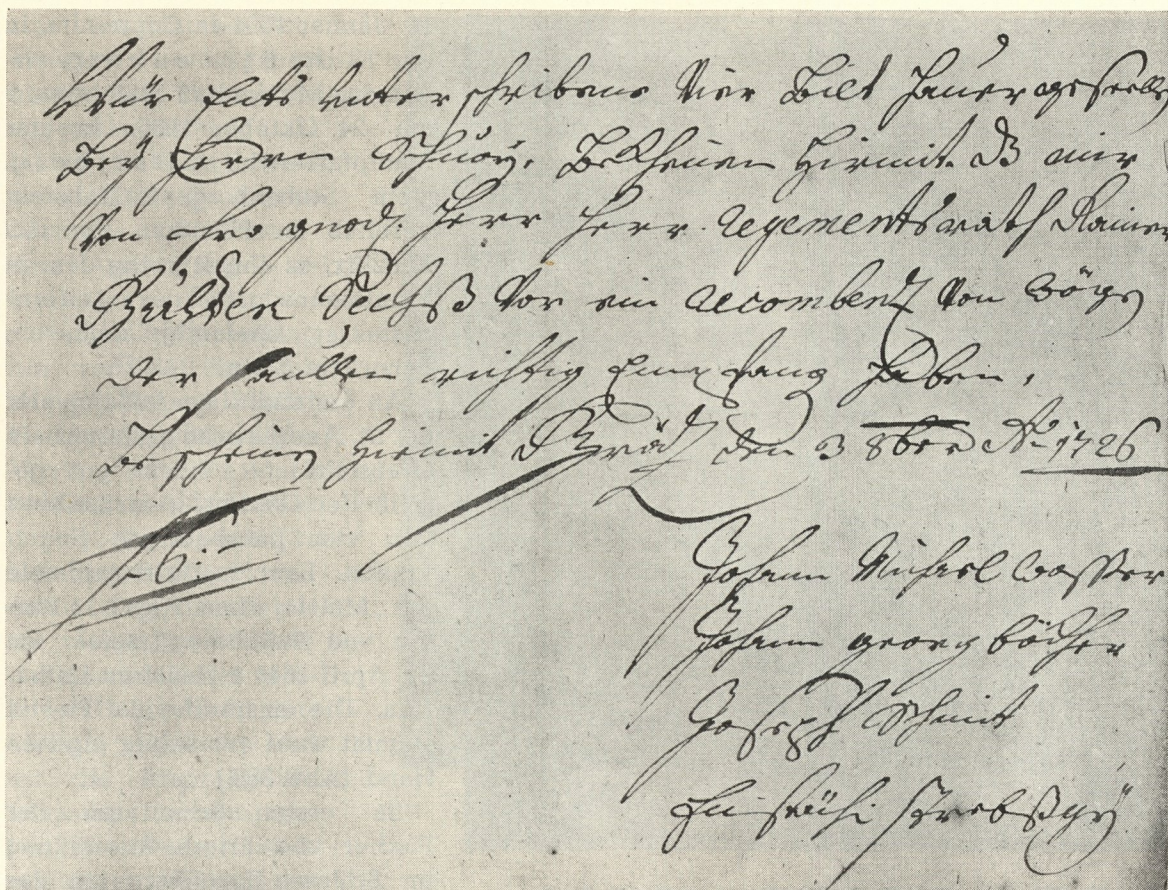 Wür Ents unter schribene Vier Bilt hauer geselle
Beÿ Herrn Schnoÿ. Bekhenen Hirmit. dß mir
Von ihro gnad. Herr Herr. regements rath
Gulden Sechß Vor ein recombenz Von
der Saullen richtig Empfang haben,
Bescheinen Hiermit Gräz den 3 8ber Ao 1726
6:-
Johann Michael Wasser
Johann georg böcher
Joseph Schmit